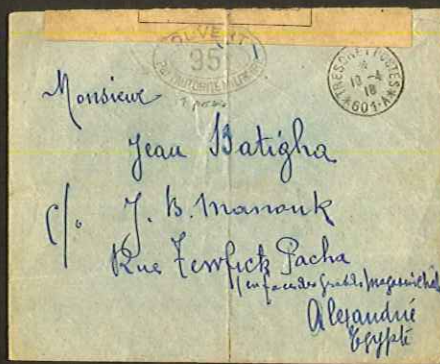 OUVERT
95
PAR L'AUTORITÉ MILITAIRE
TRESOR ET POSTES
*
10 -4
18
*601.A*
Monsieur
Jean Batigha
c/o J. B. Manouk
Rue Tewfick Pacha
(en face des Grands Magasins
Alexandrie
Egypte